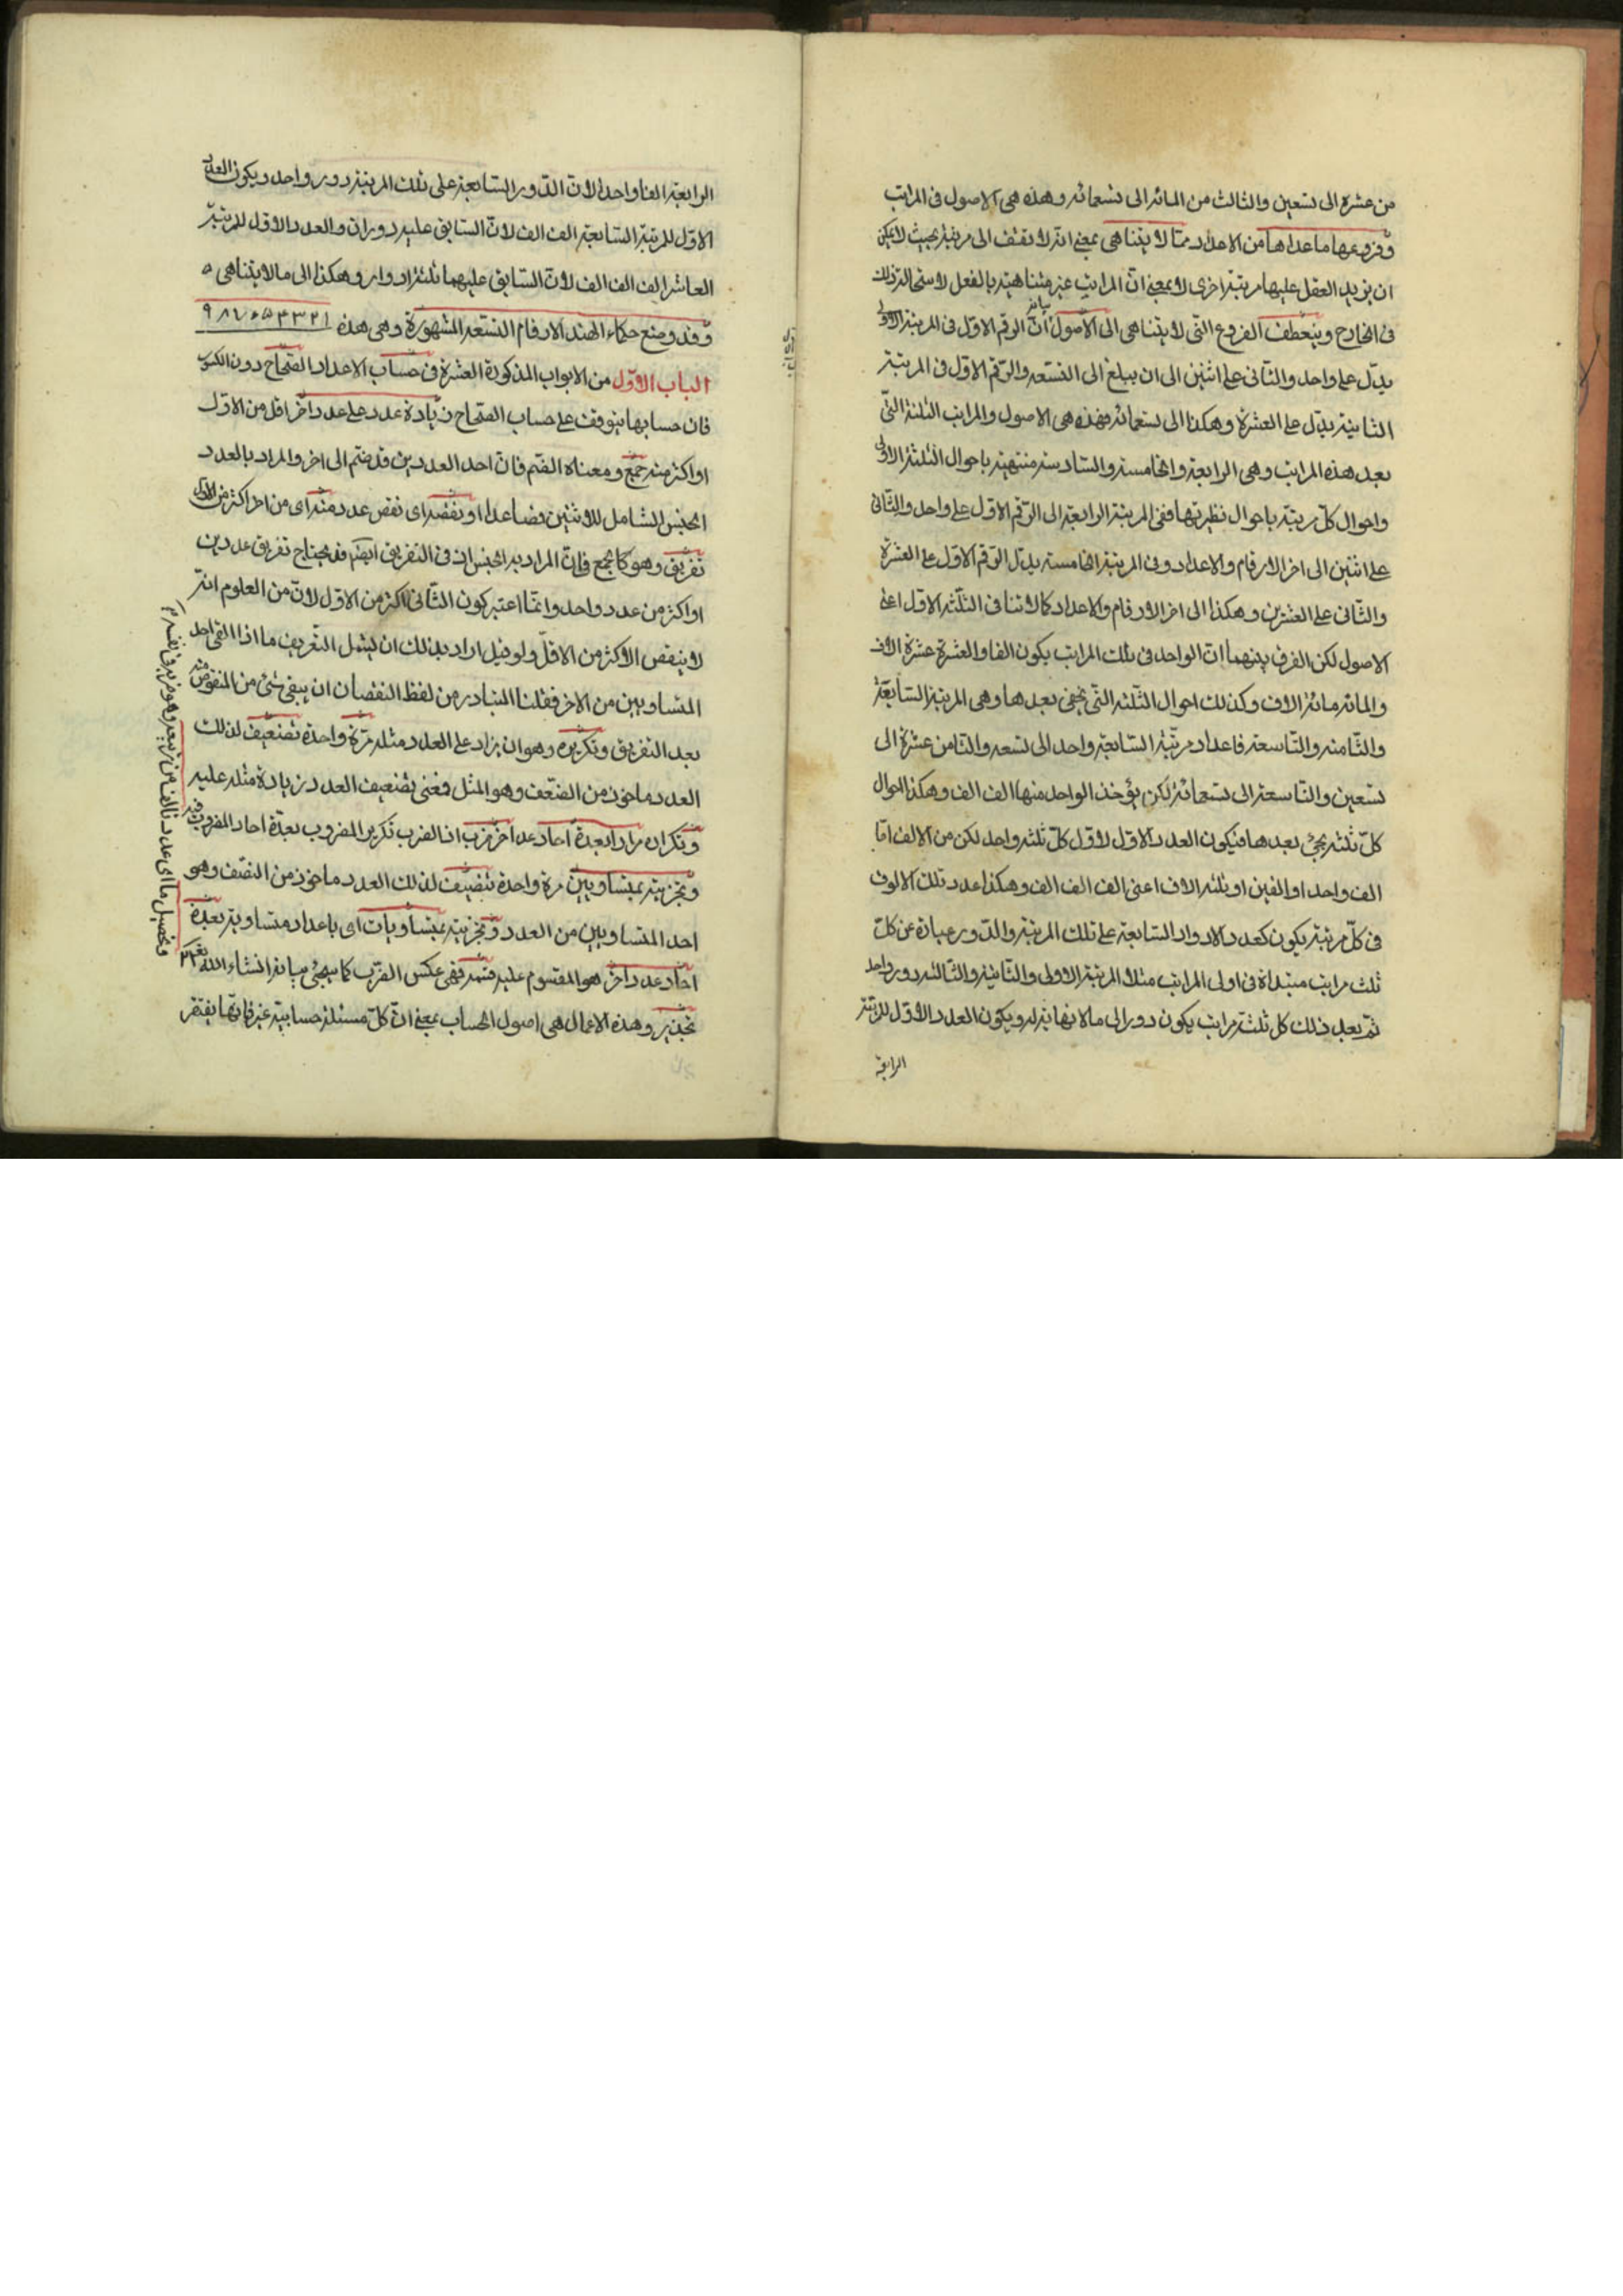 من عشرة الى تسعين والثالث من المائة الى تسعمائه وهذه هى الاصول فى المراتب
وفروعها ما عداها من الاعداد مما لا يتناهى بمعنى انه لا تقف الى مرتبة بحيث لا يمكن
ان يزيد العقل عليها مرتبة اخرى لا بمعنى ان المراتب غير متناهية بالفعل لاستحالة ذلك
فى الخارج وينعطف الفروع التى لا يتناهى الى الاصول بيانه ان الرقم الاول فى المرتبة الاولى
يدل على واحد والثانى على اثنين الى ان يبلغ الى التسعه والرقم الاول فى المرتبة
الثانية يدل على العشرة وهكذا الى تسعمائه فهذه هى الاصول والمراتب الثلثة التى
بعد هذه المراتب وهى الرابعة والخامسة والسادسة منتهية باحوال الثلثة الاولى
واحوال كل مرتبة باحوال نظيرتها ففى المرتبة الرابعة الى الرقم الاول على واحد والثانى
على اثنين الى اخر الارقام والاعداد وفى المرتبة الخامسة يدل الرقم الاول على العشرة
والثانى على العشرين وهكذا الى اخر الارقام والاعداد كما لاثنا فى الثلثه الاول اعنى
الاصول لكن الفرق بينهما ان الواحد فى تلك المراتب يكون الفا والعشرة عشرة الاف
والمائة مائة الاف وكذلك احوال الثلثه التى تجئ بعدها وهى المرتبة السابعة
والثامنه والتاسعة فاعداد مرتبة السابعة واحد الى تسعه والثامن عشرة الى
تسعين والتاسعة الى تسعمائة لكن يؤخذ الواحد منها الف الف وهكذا احوال
كل ثلثة يجئ بعدها فيكون العدد الاول لاول كل ثلثه واحد لكن من الالف اما
الف واحد او الفين او ثلثه الاف اعنى الف الف الف وهكذا عدد تلك الالوف
فى كل مرتبة يكون كعدد الادوار السابعة على تلك المرتبة والدور عبارة عن كل
ثلث مراتب مبتداة فى اولى المراتب مثلا المرتبة الاولى والثانية والثالثه دور واحد
ثم بعد ذلك كل ثلثة مراتب يكون دور الى ما لا نهاية له ويكون العدد الاول للمرتبة
الرابعة
الرابعة الفا واحدا لان الدور السابعة على تلك المرتبة دور واحد ويكون العدد
الاول للمرتبة السابعة الف الف لان السابق عليه دوران والعدد الاول للمرتبة
العاشر الف الف الف لان السابق عليهما ثلثة ادوار وهكذا الى ما لا يتناهى ه
وقد وضع حكماء الهند الارقام التسعة المشهورة وهى هذه
الباب الاول من الابواب المذكورة العشرة فى حساب الاعداد الصحاح دون الكسور
فان حسابها يتوقف على حساب الصحاح زيادة عدد على عدد اخر اقل من الاول
او اكثر منه جمع ومعناه الضم فان احد العددين قد ضم الى اخر والمراد بالعدد
الجنس الشامل للاثنين فصاعدا او نقصه اى نقص عدد منه اى من اخر اكثر من الاول
تفريق وهو كالجمع فى ان المراد به الجنس اذ فى التفريق ايضا قد يحتاج تفريق عددين
او اكثر من عدد واحد وانما اعتبر كون الثانى اكثر من الاول لان من العلوم انه
لا ينقص الاكثر من الاقل ولو قيل اراد بذلك ان يشمل التعريف ما اذا القى احد
المتساويين من الاخر فقلنا المتبادر من لفظ النقصان ان يبقى شئ من المنقوص منه
بعد التفريق وتكريره وهو ان يزاد على العدد مثله مرة واحدة تضعيف لذلك
العدد ماخوذ من الضعف وهو المثل فمعنى تضعيف العدد زيادة مثله عليه
وتكراره مرارا بعدة احاد عدد اخر ضرب اذ الضرب تكرير المضروب بعدة احاد المضروب فيه
وتجزيته بمتساويين مرة واحدة تنصيف لذلك العدد ماخوذ من النصف وهو
احد المتساويين من العدد وتجزيته بمتساويات اى باعداد متساوية بعدة
احاد عدد اخر هو المقسوم عليه قسمة فهى عكس الضرب كما سيجئ بيانه انشاء الله تعالى
تجذير وهذه الاعمال هى اصول الحساب بمعنى ان كل مسئلة حسابية غيرها فانها يفتقر
وتحصيل ما اى عدد تالف من تربيعه وهو ضربه فى نفسه